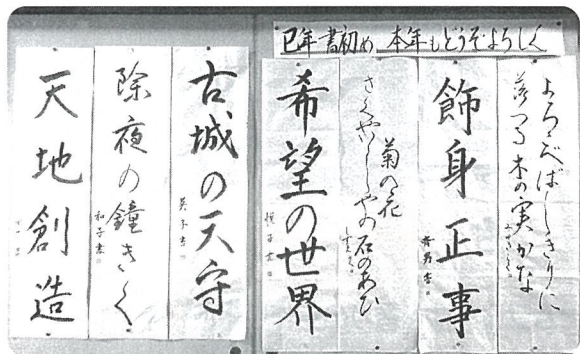 巳年 書初め 本年もどうぞよろしく
よろこべばしきりに
落つる木の実かな
飾身正事
菊の花
さくやいしやの石のあひ
希望の世界
古城の天守
英子書
除夜の鐘きく
和子書
天地創造